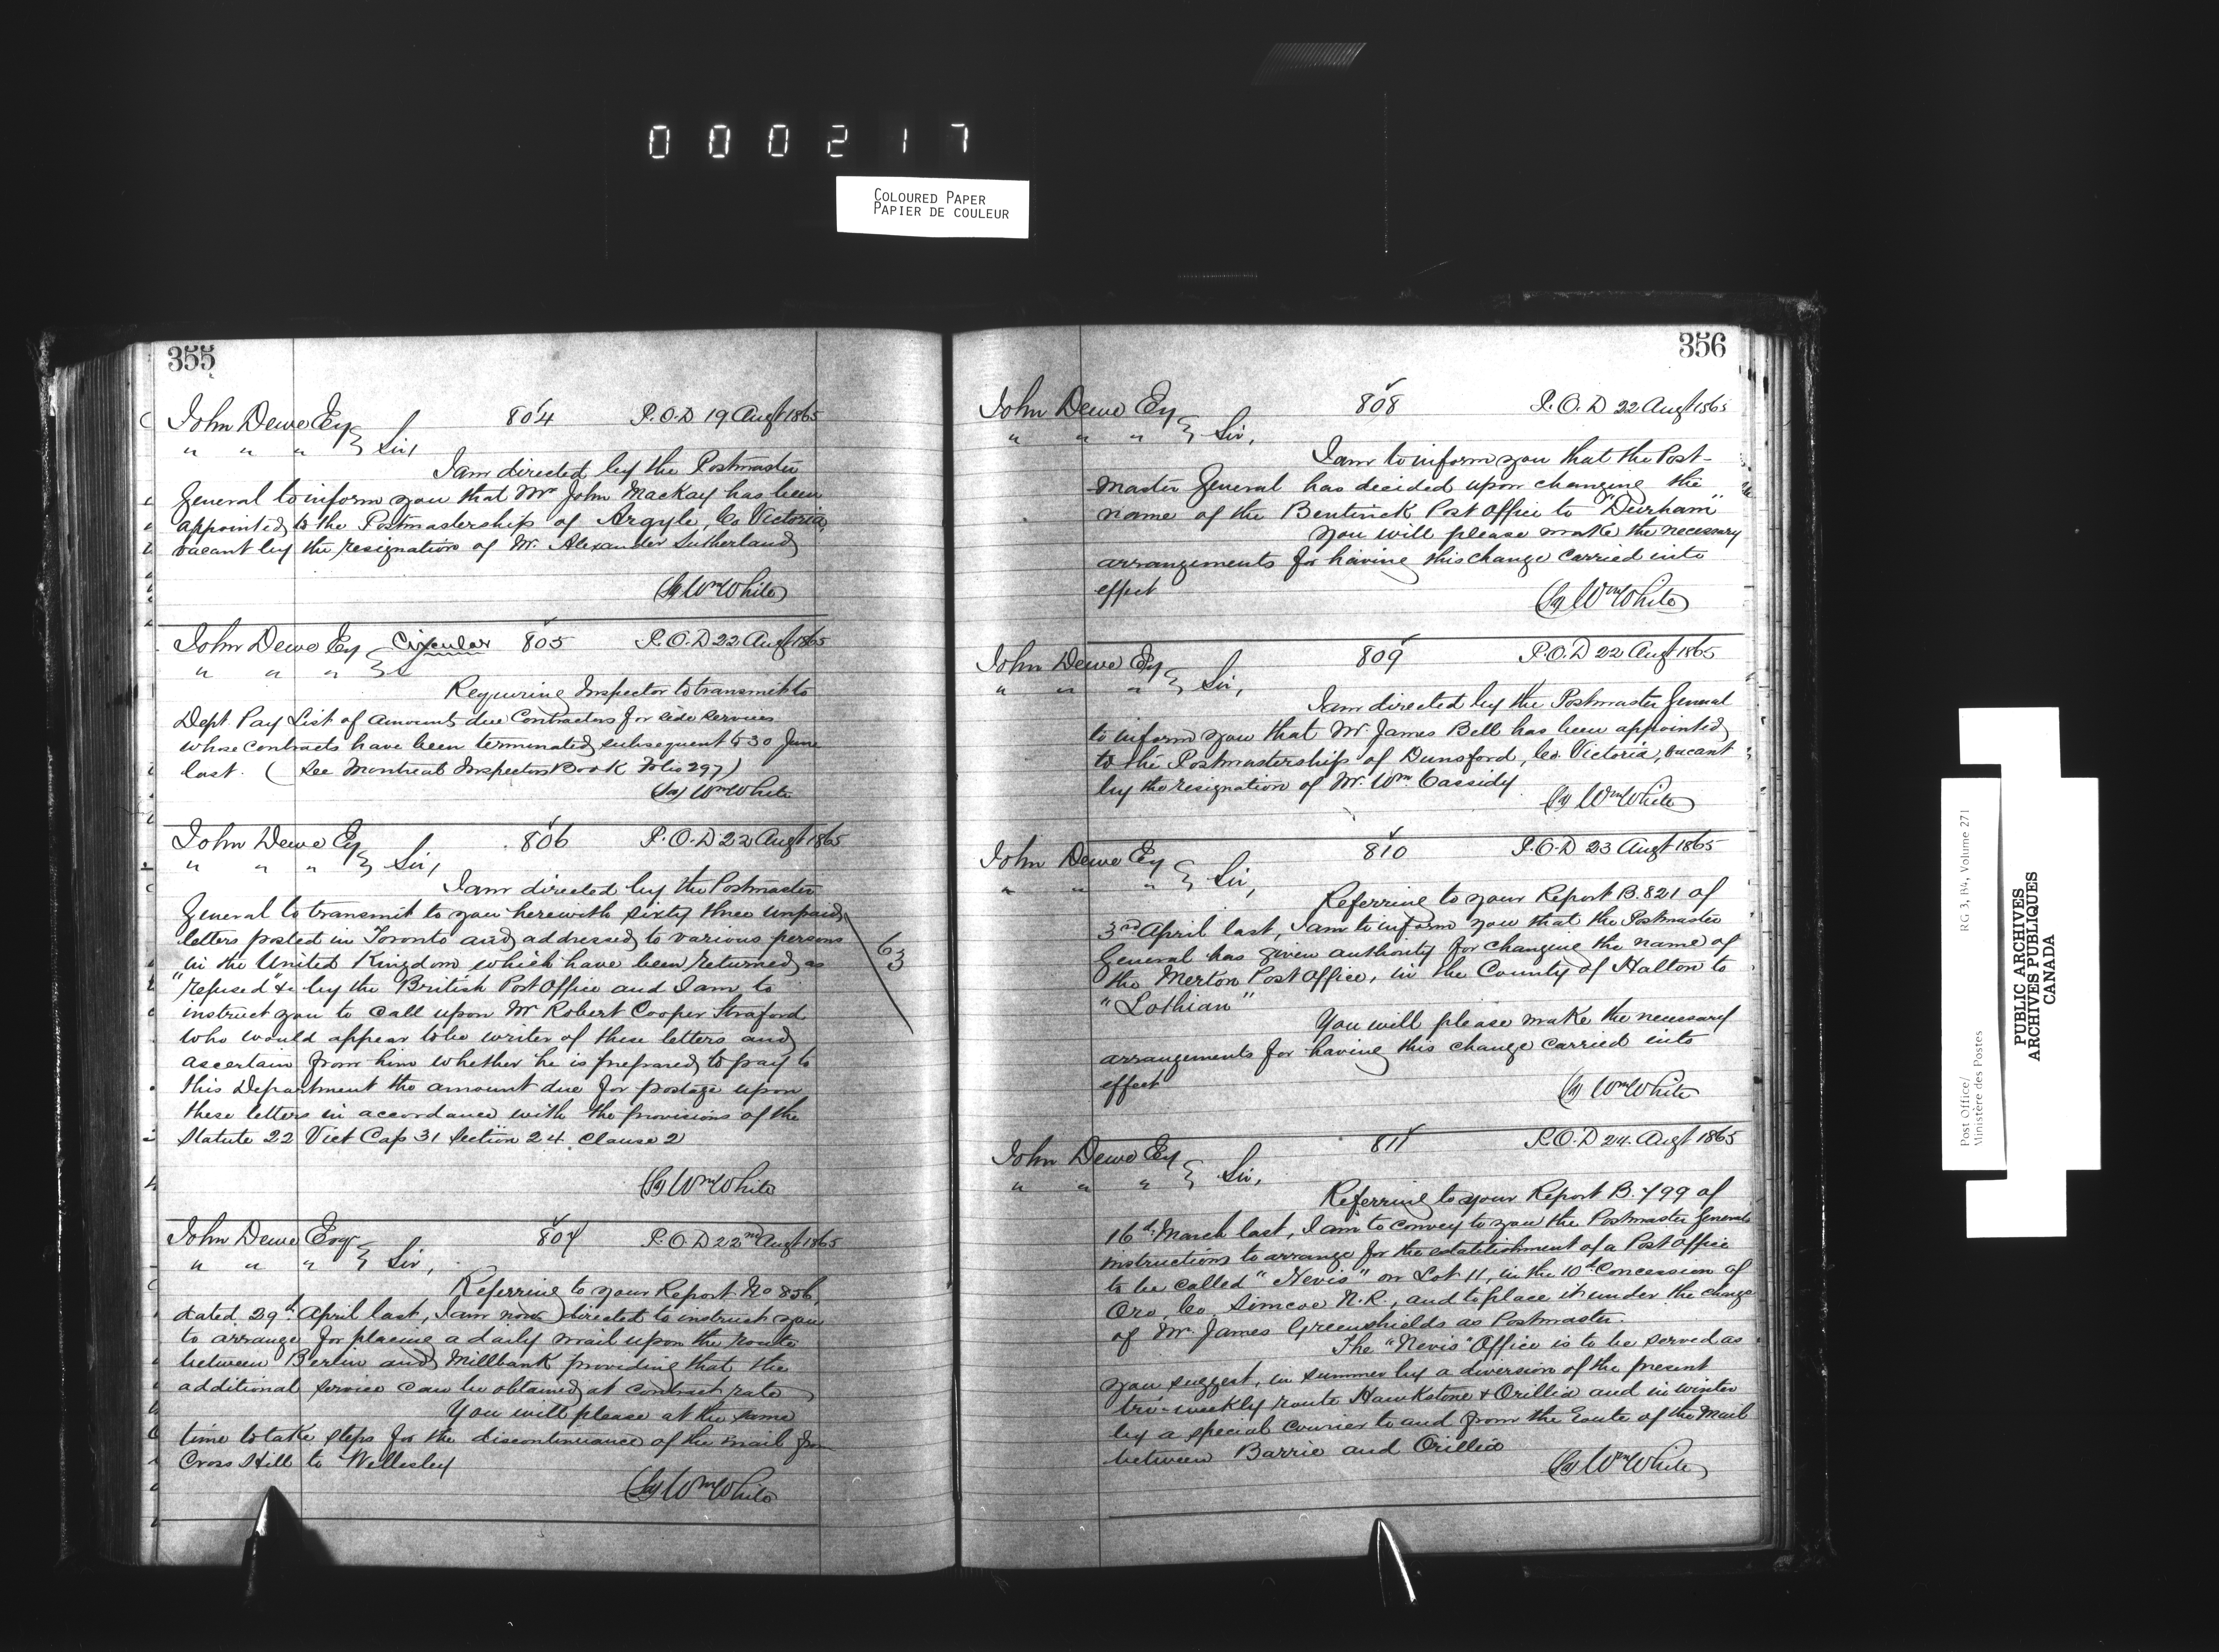 000217
COLOURED PAPER
PAPIER DE COULEUR
355
John Dewe Esq 804 P.O.D 19 Augt 1865
" " " } Sir,
I am directed by the Postmaster
General to inform you that Mr John Mackay has been
appointed to the Postmastership of Argyle, Co Victoria,
vacant by the resignation of Mr. Alexander Sutherland
(Sg) Wm White
John Dewe Esq Circular 805 P.O.D 22 Augt 1865
" " " }
Requiring Inspector to transmit to
Dept. Pay List of amounts due Contractors for side services
whose contracts have been terminated subsequent to 30 June
last. (See Montreal Inspectors Book Folio 297)
(Sg) Wm White
John Dewe Esq 806 P.O.D 22 Augt 1865
" " " } Sir,
I am directed by the Postmaster
General to transmit to you herewith sixty three unpaid
letters posted in Toronto and addressed to various persons
63
in the United Kingdom which have been returned as
"refused" &c by the British Post Office and I am to
instruct you to call upon Mr Robert Cooper Straford
who would appear to be writer of these letters and
ascertain from him whether he is prepared to pay to
this Department the amount due for postage upon
these letters in accordance with the provisions of the
Statute 22 Vict Cap 31 Section 24 Clause 2
(Sg) Wm White
John Dewe Esqr 807 P.O.D 22nd Augt 1865
" " " } Sir,
Referring to your Report No 856,
dated 29th April last, I am now directed to instruct you
to arrange for placing a daily mail upon the route
between Berlin and Millbank providing that the
additional service can be obtained at contract rate
You will please at the same
time to take steps for the discontinuance of the mail from
Cross Hill to Wellesley
(Sg) Wm White
356
John Dewe Esq 808 P.O.D 22 Augt 1865
" " " } Sir,
I am to inform you that the Post-
master General has decided upon changing the
name of the Bentinck Post Office to "Durham"
You will please make the necessary
arrangements for having this change carried into
effect
(Sg) Wm White
John Dewe Esq 809 P.O.D 22 Augt 1865
" " " } Sir,
I am directed by the Postmaster General
to inform you that Mr James Bell has been appointed
to the Postmastership of Dunsford, Co. Victoria, vacant
by the resignation of Mr. Wm Cassidy
(Sg) Wm White
John Dewe Esq 810 P.O.D 23 Augt 1865
" " " } Sir,
Referring to your Report B.821 of
3rd April last, I am to inform you that the Postmaster
General has given authority for changing the name of
the Merton Post Office, in the County of Halton to
"Lothian"
You will please make the necessary
arrangements for having this change carried into
effect
(Sg) Wm White
John Dewe Esq 811 P.O.D 24 Augt 1865
" " " } Sir,
Referring to your Report B.799 of
16th March last, I am to convey to you the Postmaster Generals
instructions to arrange for the establishment of a Post Office
to be called "Nevis" on Lot 11, in the 10th Concession of
Oro, Co. Simcoe N.R., and to place it under the charge
of Mr. James Greenshields as Postmaster.
The "Nevis" Office is to be served as
you suggest, in summer by a diversion of the present
tri-weekly route Hawkstone & Orillia and in winter
by a special courier to and from the Route of the Mail
between Barrie and Orillia
(Sg) Wm White
Post Office/
Ministère des Postes
RG 3, B4, Volume 271
PUBLIC ARCHIVES
ARCHIVES PUBLIQUES
CANADA